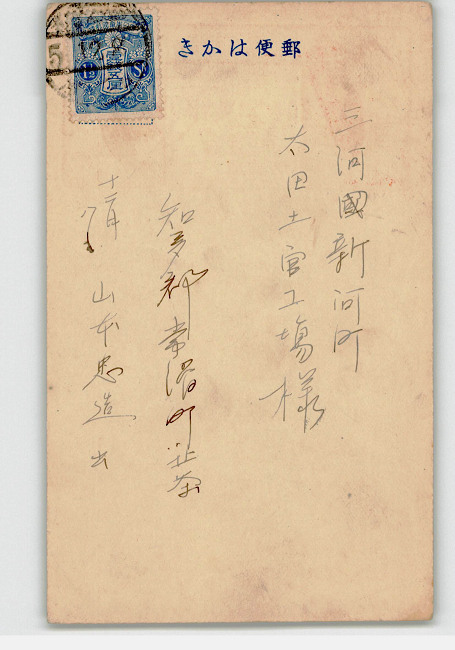 きかは便郵
1½ Sn
三河國新河町
太田土官工場様
知多郡常滑町北条
十二月
山本忠造出